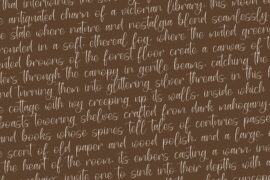 that intertwines
antiquated charm of a victorian library, this room
state where nature and nostalgia blend seamlessly
rounded in a soft, ethereal fog, where the muted greens
browns of the forest floor create a canvas of
ders through the canopy in gentle beams, catching
and turning them into glittering silver threads in
cottage with ivy creeping up its walls, inside which
boasts towering shelves crafted from dark mahogany
and books whose spines tell tales of centuries passed
scent of old paper and wood polish, and a large
the heart of the room, its embers casting a warm, in
invite one to sink into their depths with a